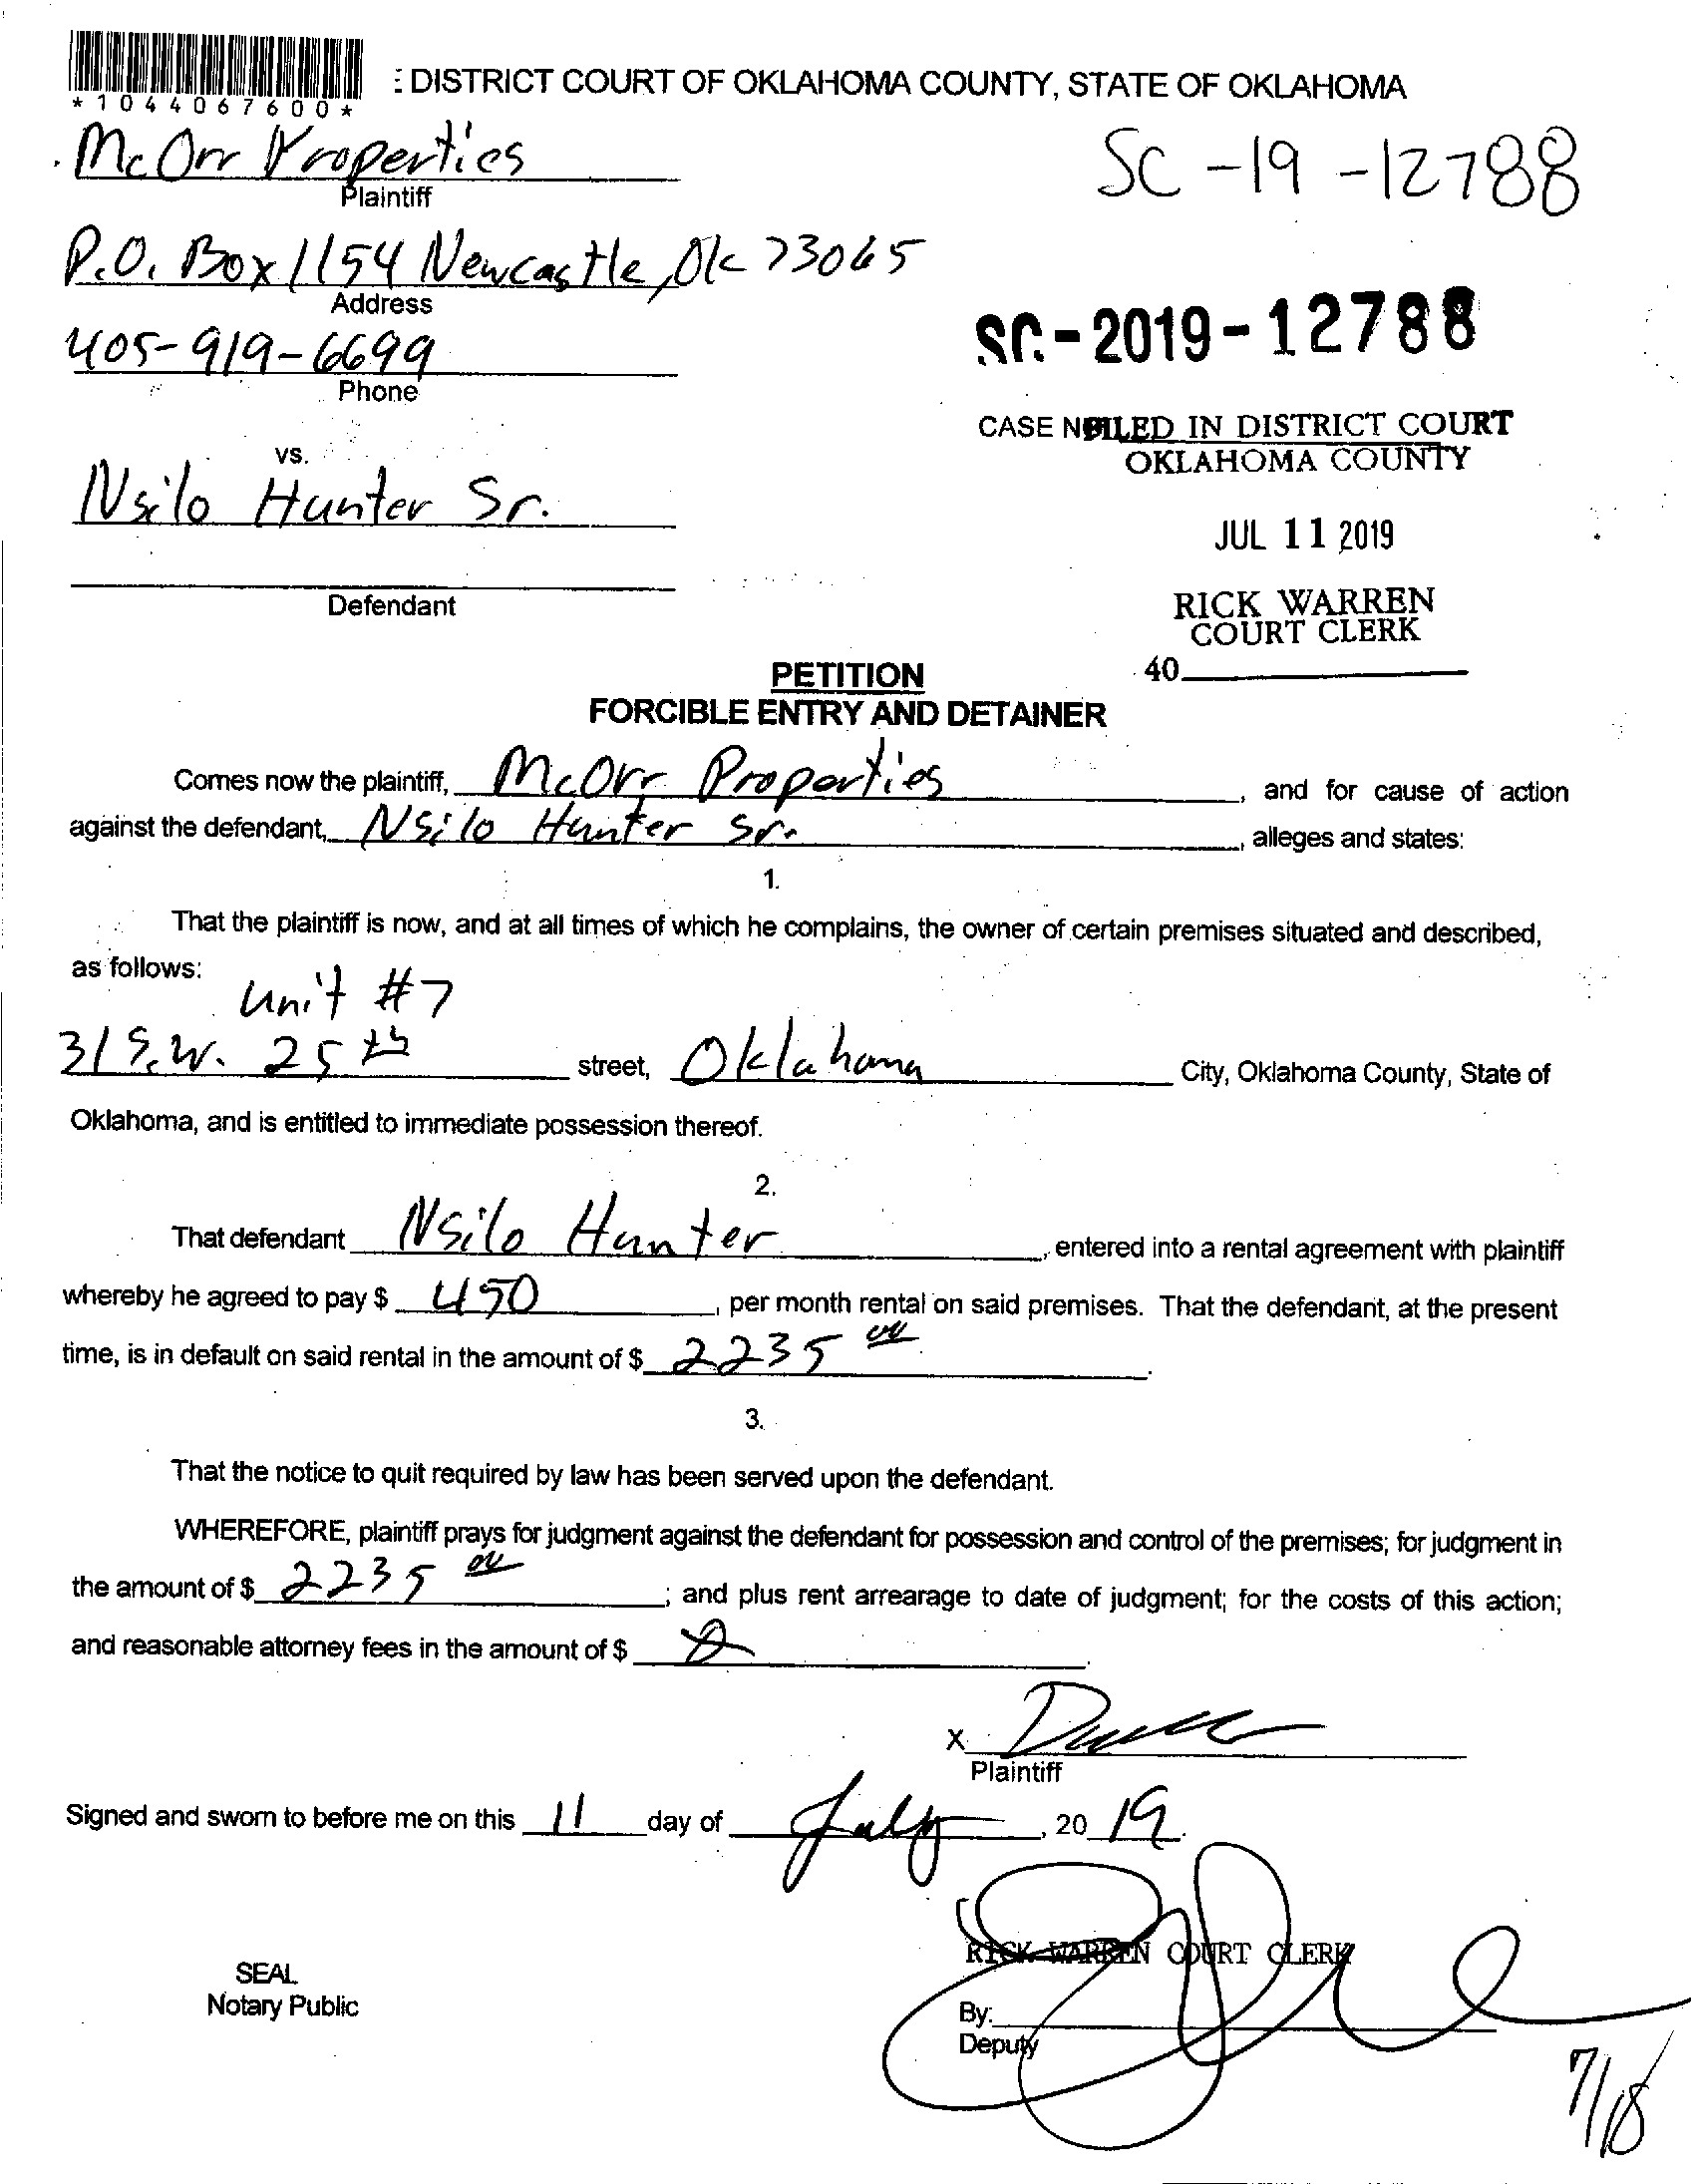 *1044067600*
: DISTRICT COURT OF OKLAHOMA COUNTY, STATE OF OKLAHOMA
McOrr Properties
Plaintiff
SC-19-12788
P.O. Box 1154 Newcastle, Ok 73065
Address
SC-2019-12788
405-919-6699
Phone
CASE NO FILED IN DISTRICT COURT
OKLAHOMA COUNTY
vs.
Nsilo Hunter Sr.
JUL 11 2019
Defendant
RICK WARREN
COURT CLERK
40
PETITION
FORCIBLE ENTRY AND DETAINER
Comes now the plaintiff, McOrr Properties, and for cause of action
against the defendant, Nsilo Hunter Sr., alleges and states:
1.
That the plaintiff is now, and at all times of which he complains, the owner of certain premises situated and described,
as follows:
Unit #7
31 S.W. 25th street, Oklahoma City, Oklahoma County, State of
Oklahoma, and is entitled to immediate possession thereof.
2.
That defendant Nsilo Hunter, entered into a rental agreement with plaintiff
whereby he agreed to pay $ 450, per month rental on said premises. That the defendant, at the present
time, is in default on said rental in the amount of $ 2235 00.
3.
That the notice to quit required by law has been served upon the defendant.
WHEREFORE, plaintiff prays for judgment against the defendant for possession and control of the premises; for judgment in
the amount of $ 2235 00; and plus rent arrearage to date of judgment; for the costs of this action;
and reasonable attorney fees in the amount of $
X
Plaintiff
Signed and sworn to before me on this 11 day of July, 2019.
RICK WARREN COURT CLERK
SEAL
Notary Public
By:
Deputy
7/18